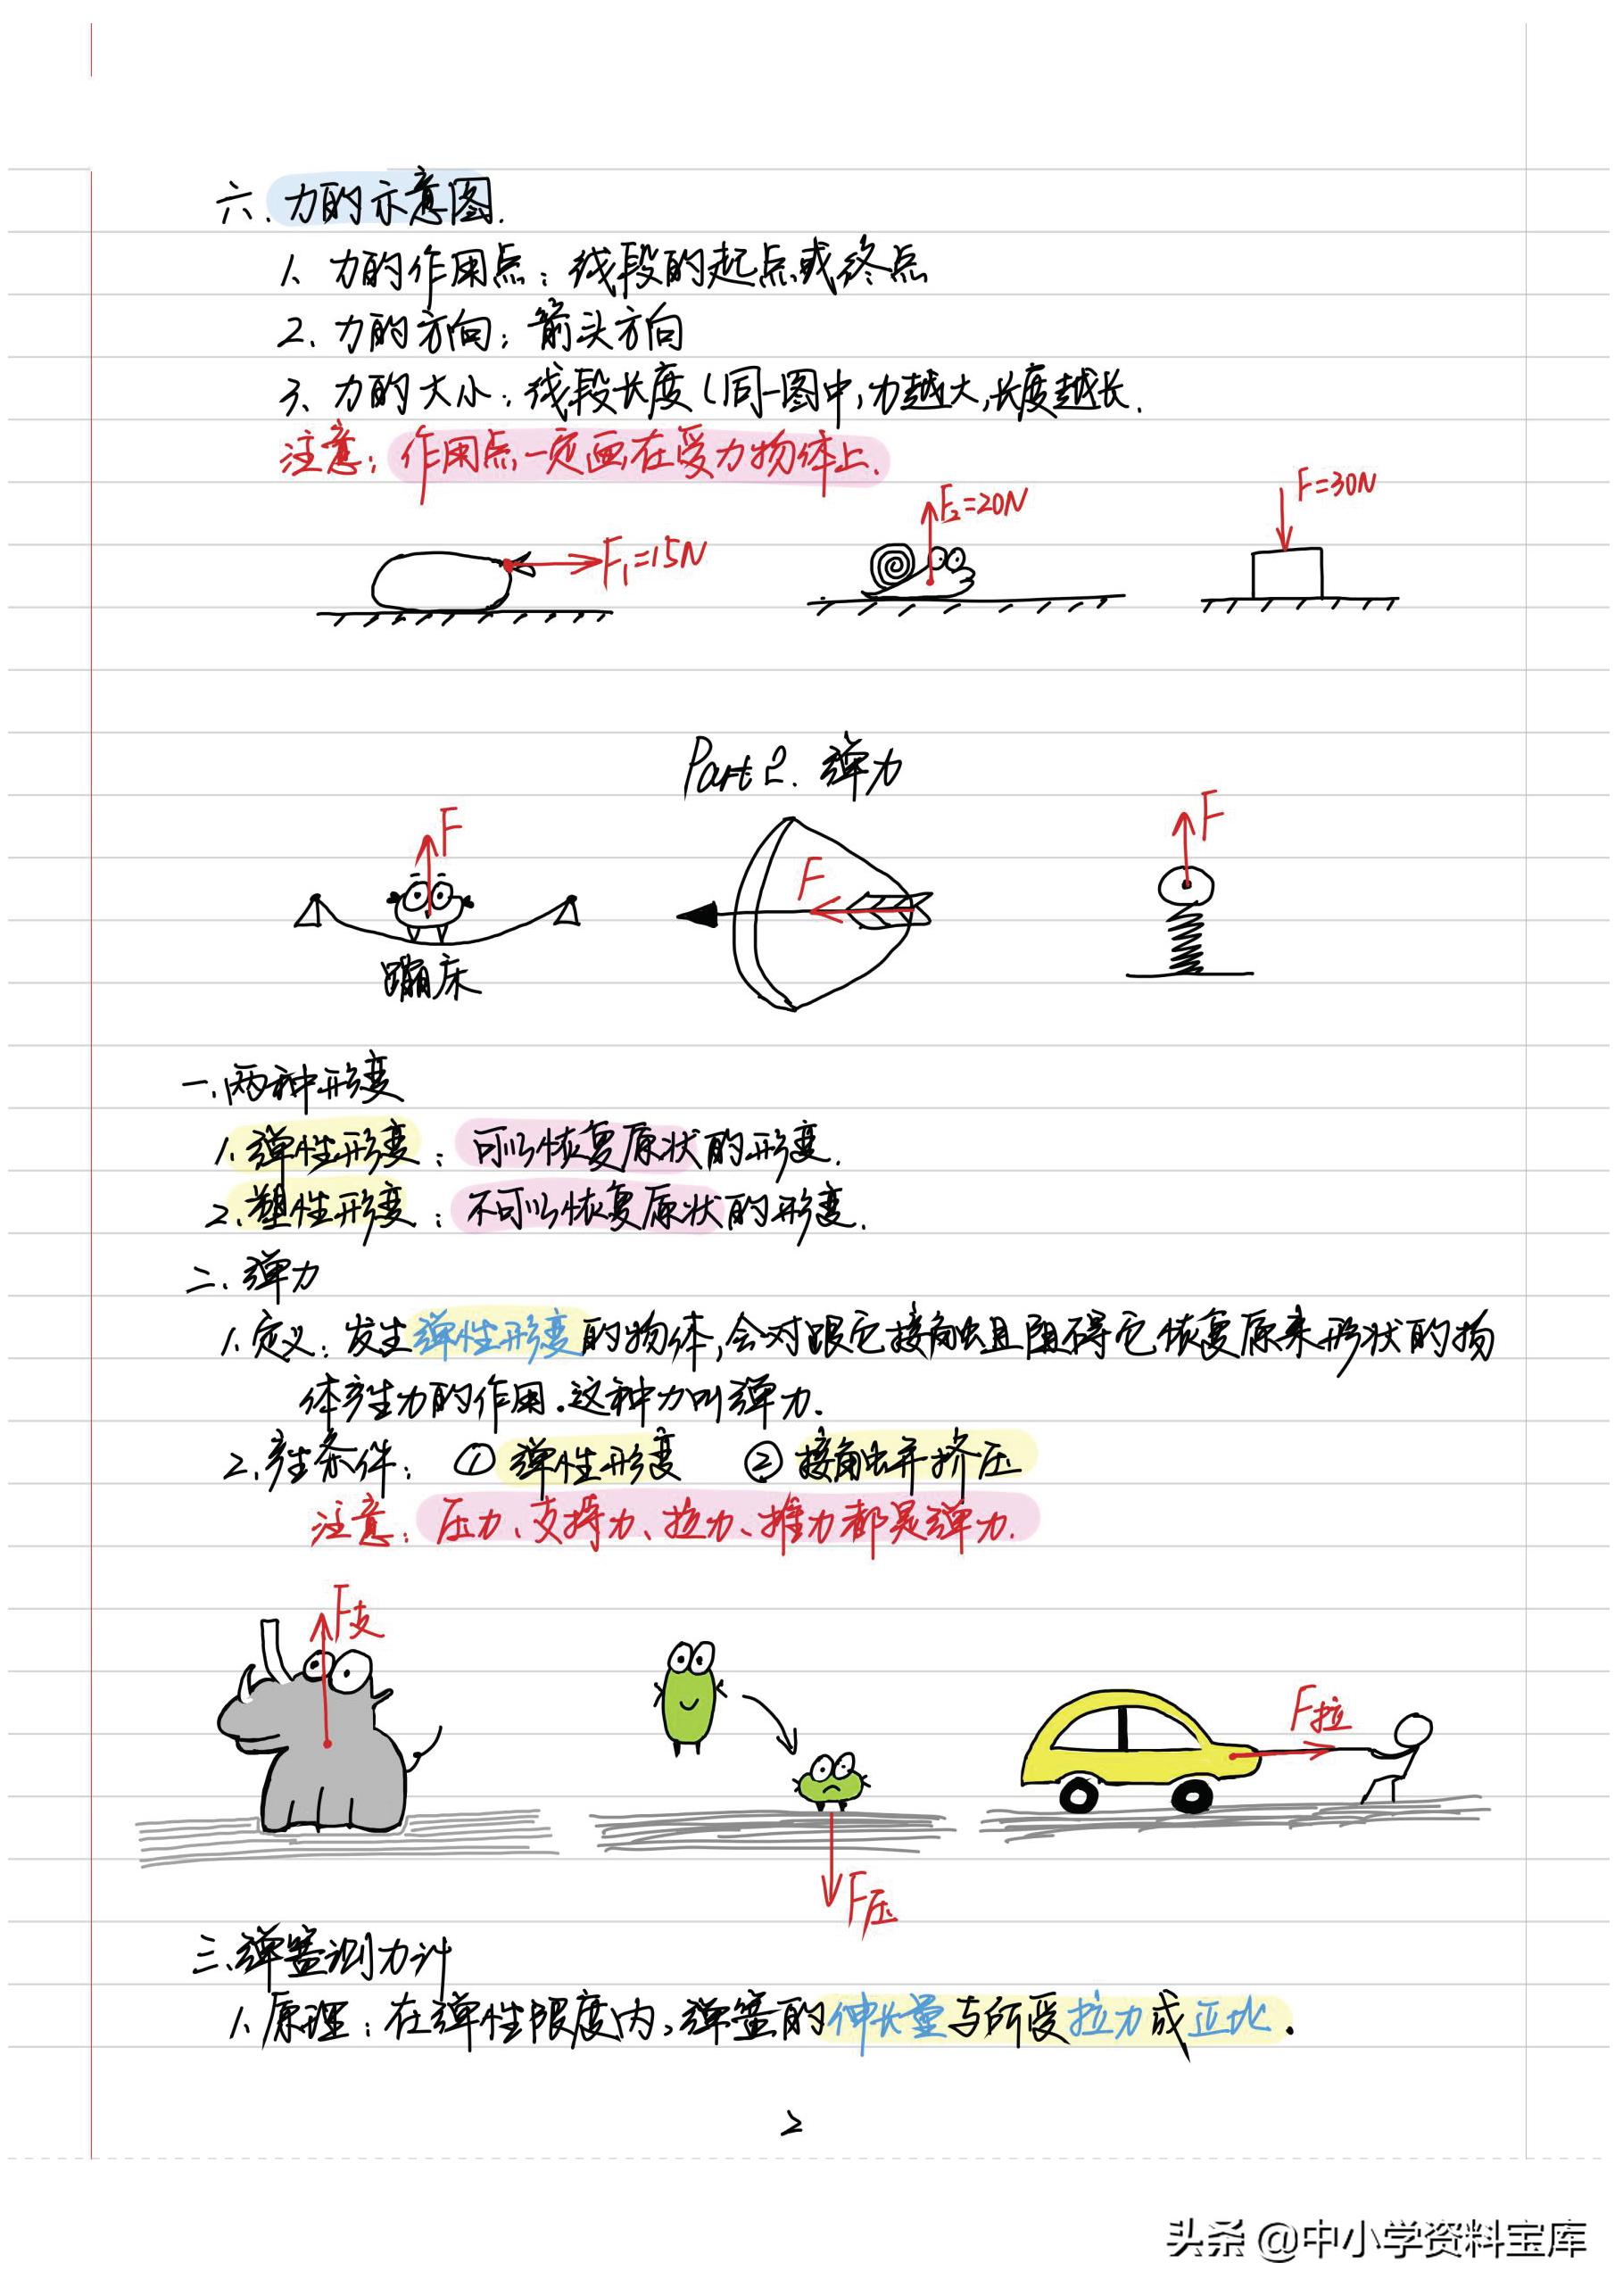 六.力的示意图.
1、力的作用点：线段的起点或终点
2、力的方向：箭头方向
3、力的大小：线段长度（同一图中,力越大,长度越长.
注意：作用点一定画在受力物体上.
F₁=15N
F₂=20N
F=30N
Part 2. 弹力
F
F
F
蹦床
一.两种形变
1.弹性形变：可以恢复原状的形变.
2.塑性形变：不可以恢复原状的形变.
二.弹力
1.定义：发生弹性形变的物体,会对跟它接触且阻碍它恢复原来形状的物
体产生力的作用.这种力叫弹力.
2.产生条件：① 弹性形变 ② 接触并挤压
注意：压力、支持力、拉力、推力都是弹力.
F支
F拉
F压
三.弹簧测力计
1.原理：在弹性限度内,弹簧的伸长量与所受拉力成正比.
2
头条 @中小学资料宝库